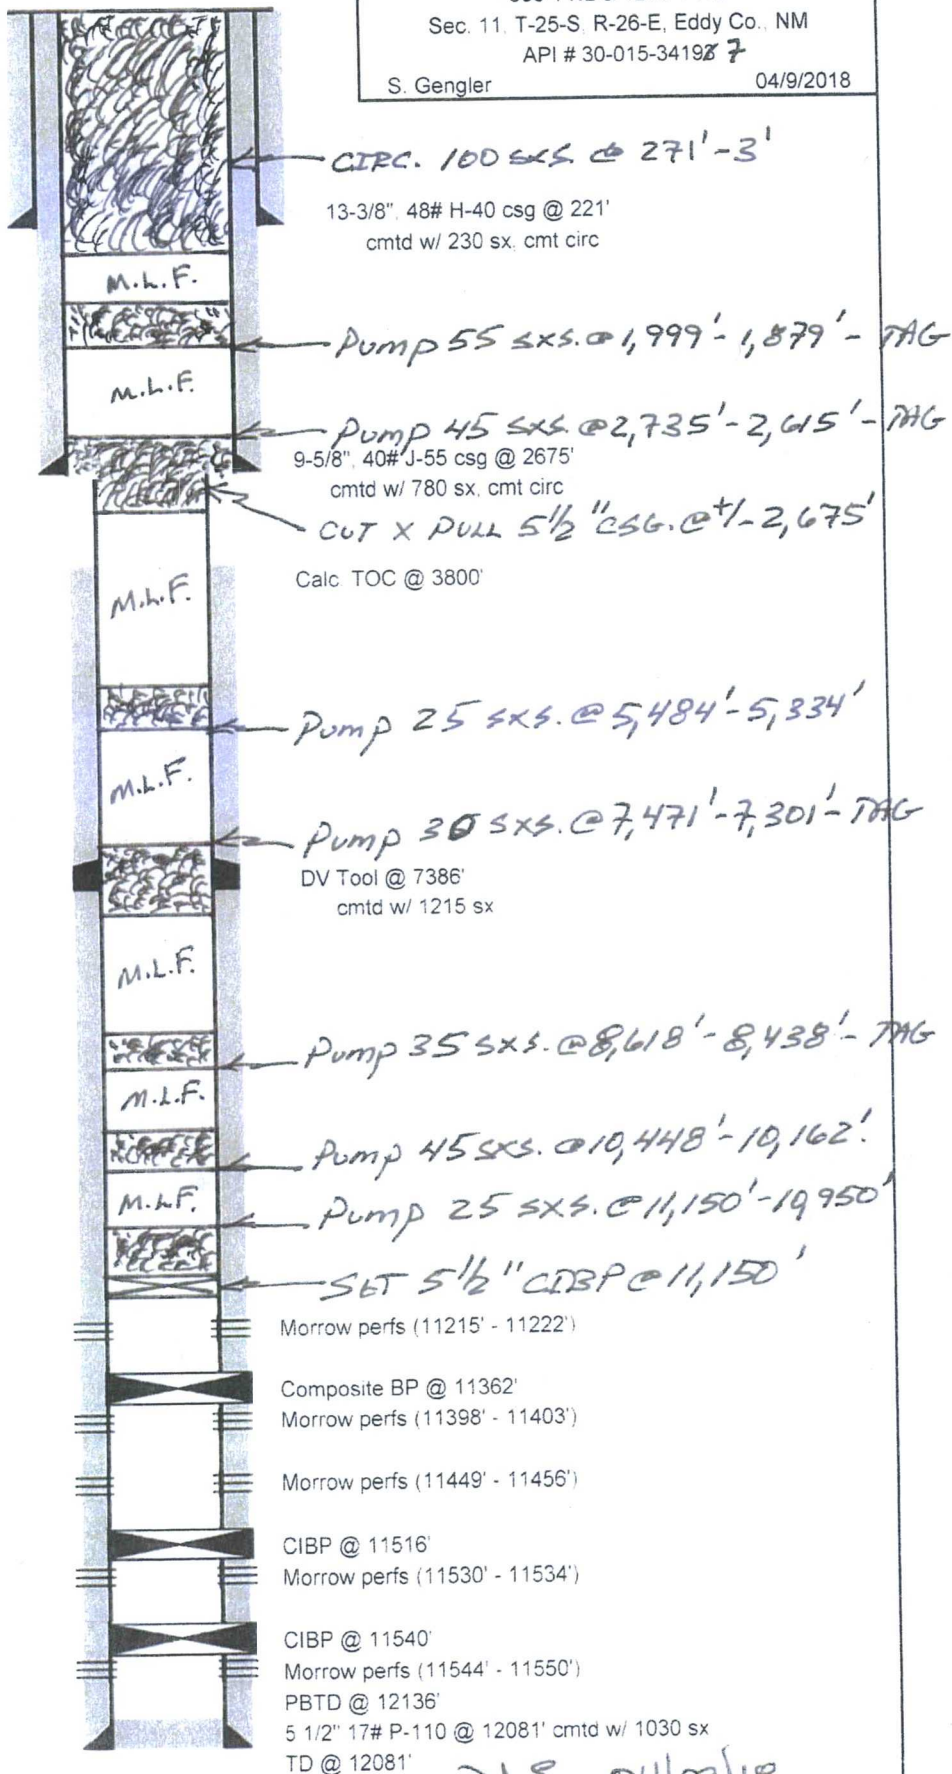 Sec. 11, T-25-S, R-26-E, Eddy Co., NM
API # 30-015-34198 7
S. Gengler 04/9/2018
CIRC. 100 SXS. @ 271'-3'
13-3/8", 48# H-40 csg @ 221'
cmtd w/ 230 sx, cmt circ
M.L.F.
Pump 55 SXS. @ 1,999'- 1,879' - TAG
M.L.F.
Pump 45 SXS. @ 2,735'- 2,615' - TAG
9-5/8", 40# J-55 csg @ 2675'
cmtd w/ 780 sx, cmt circ
CUT X PULL 5 1/2" CSG. @ +/- 2,675'
Calc. TOC @ 3800'
M.L.F.
Pump 25 SXS. @ 5,484'- 5,334'
M.L.F.
Pump 30 SXS. @ 7,471'- 7,301'- TAG
DV Tool @ 7386'
cmtd w/ 1215 sx
M.L.F.
Pump 35 SXS. @ 8,618'- 8,438' - TAG
M.L.F.
Pump 45 SXS. @ 10,448'- 10,162'.
M.L.F.
Pump 25 SXS. @ 11,150'- 10,950'
SET 5 1/2" CIBP @ 11,150'
Morrow perfs (11215' - 11222')
Composite BP @ 11362'
Morrow perfs (11398' - 11403')
Morrow perfs (11449' - 11456')
CIBP @ 11516'
Morrow perfs (11530' - 11534')
CIBP @ 11540'
Morrow perfs (11544' - 11550')
PBTD @ 12136'
5 1/2" 17# P-110 @ 12081' cmtd w/ 1030 sx
TD @ 12081'